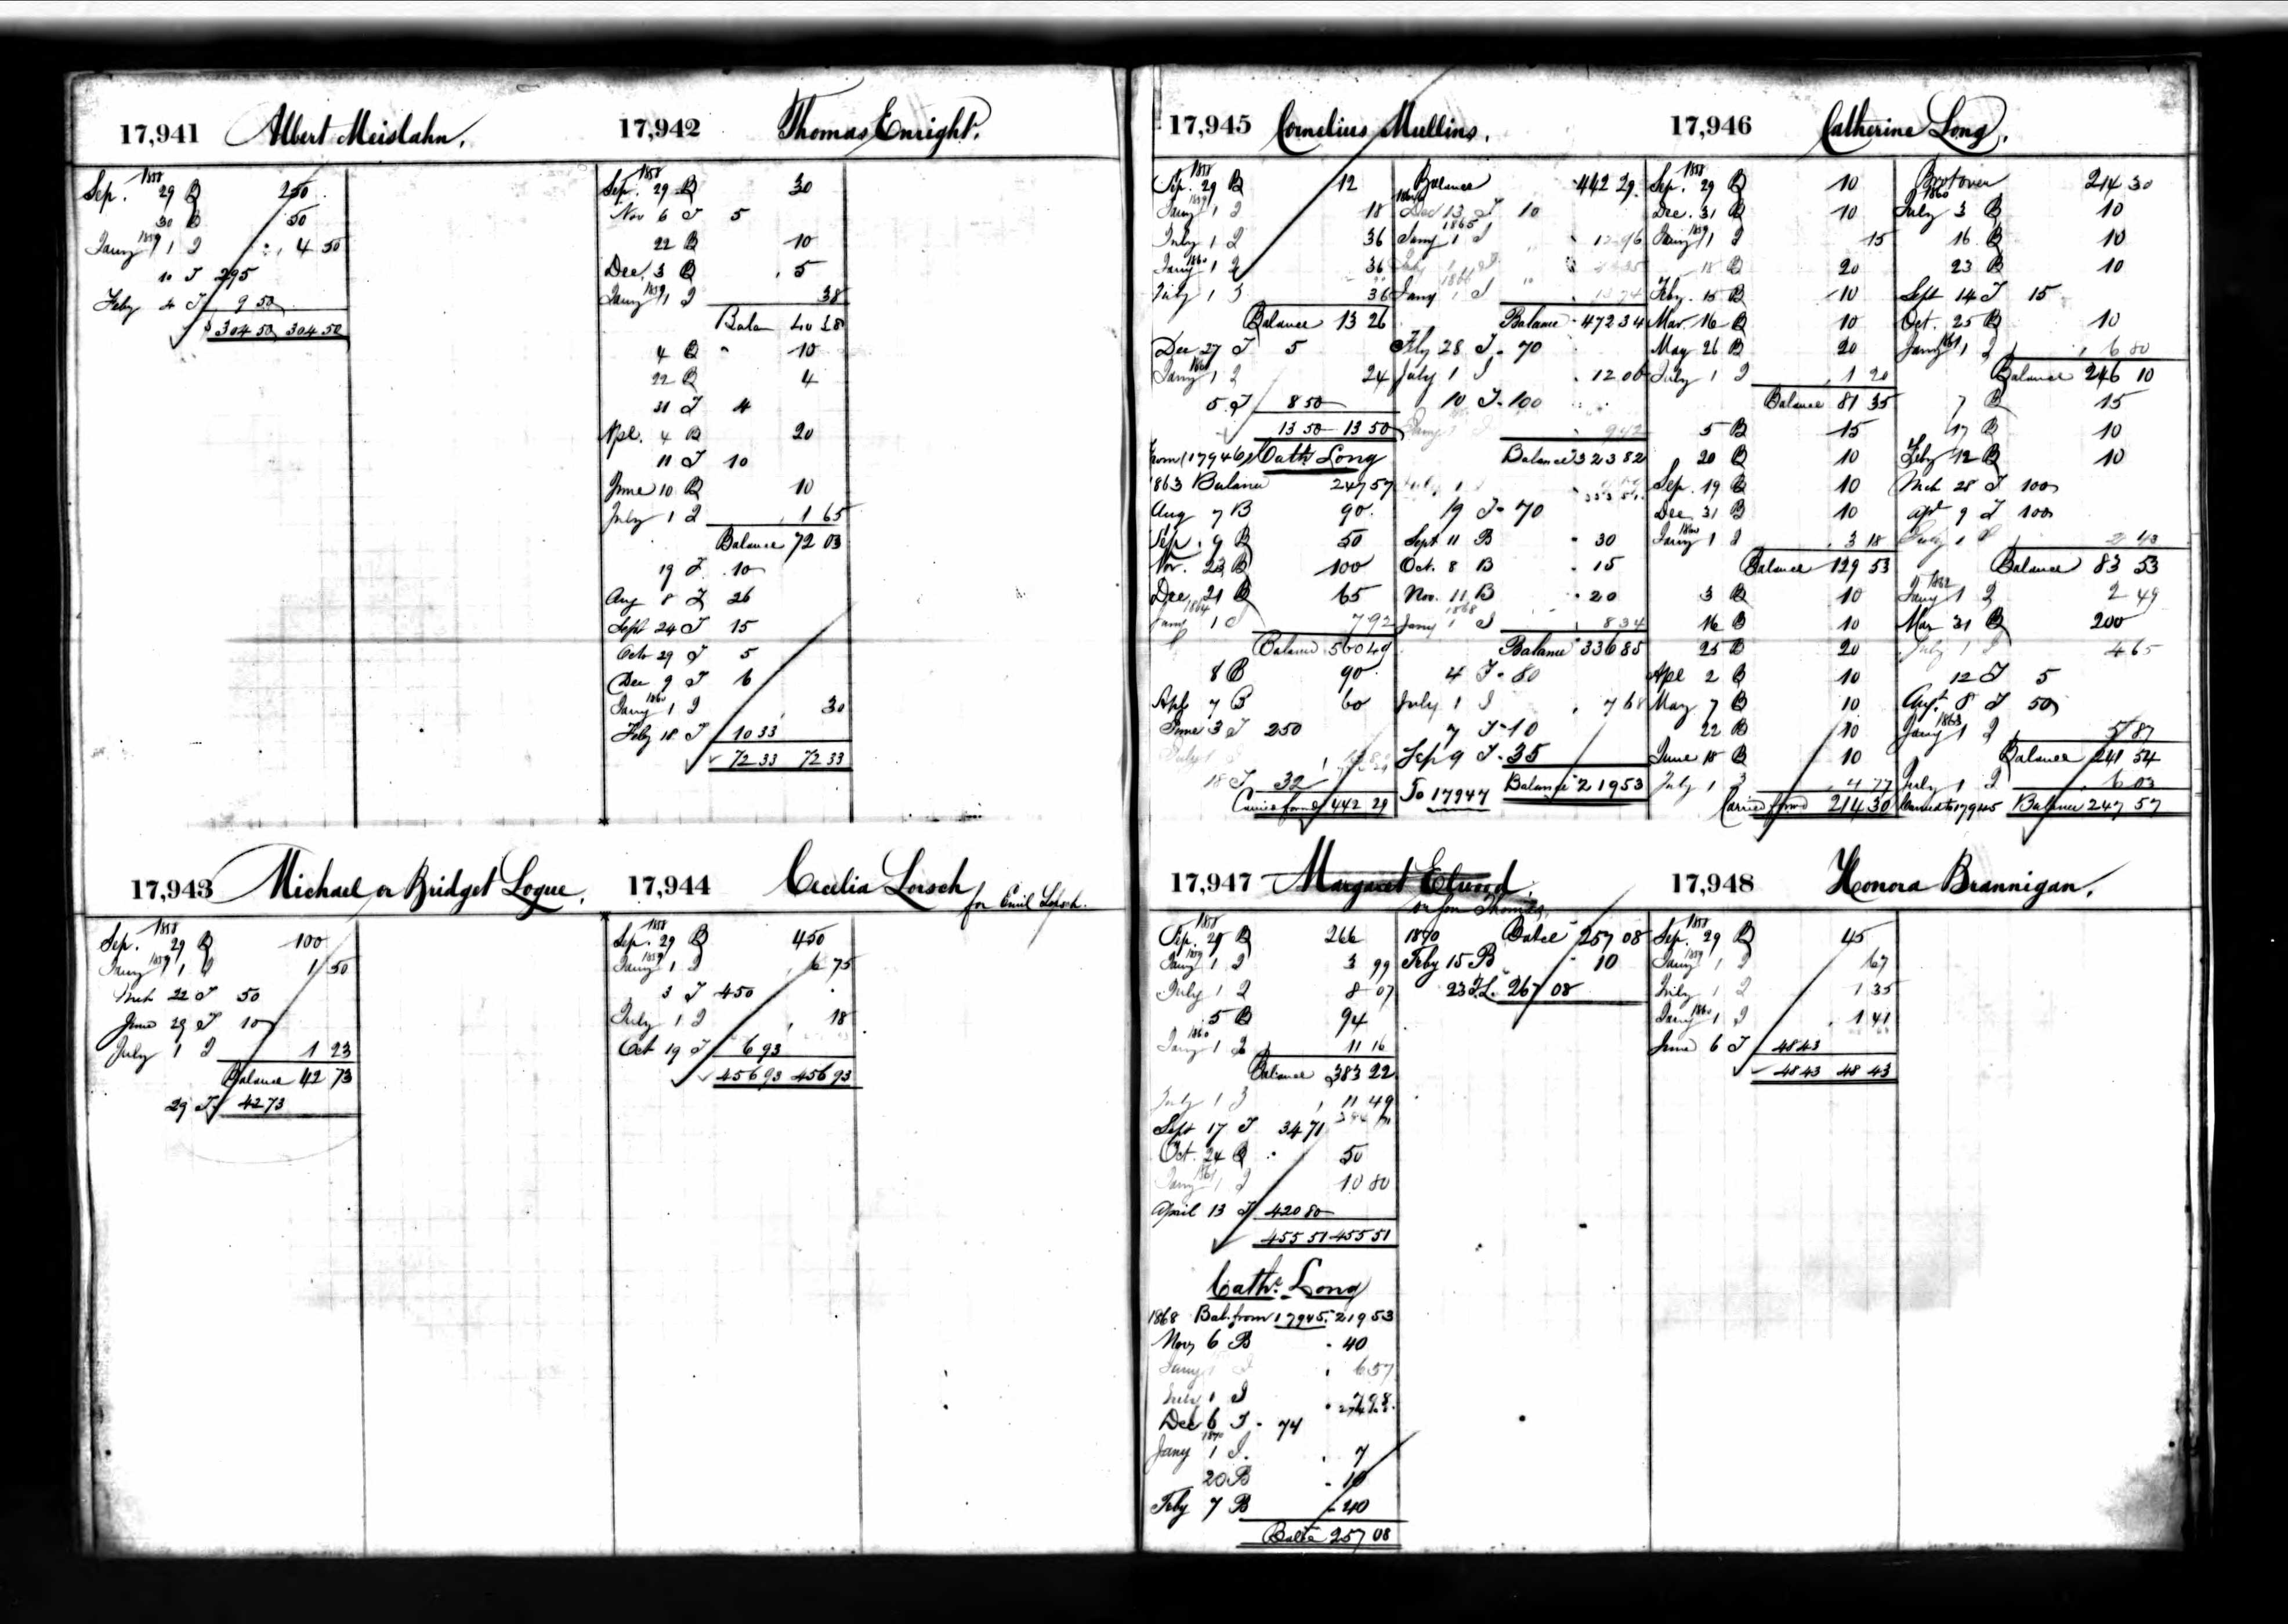 17,941 Albert Meislahn.
1858
Sep. 29 B 250
30 B 50
1859
Jany 1 I 4 50
10 T 295
Feby 4 T 9 50
$ 304 50 304 50
17,942 Thomas Enright.
1858
Sep. 29 B 30
Nov 6 T 5
22 B 10
Dec. 3 B 5
1859
Jany 1 I 38
Balan 40 38
4 B 10
22 B 4
31 T 4
Apl. 4 B 20
11 T 10
June 10 B 10
July 1 I 1 65
Balance 72 03
19 T 10
Aug 8 T 26
Sept 24 T 15
Octo 29 T 5
Dec 9 T 6
1860
Jany 1 I 30
Feby 18 T 10 33
72 33 72 33
17,943 Michael or Bridget Logue.
1858
Sep. 29 B 100
1859
Jany 1 I 1 50
Mch 22 T 50
June 29 T 10
July 1 I 1 23
Balance 42 73
29 T 42 73
17,944 Cecilia Lorsch
for Emil Lorsch.
1858
Sep. 29 B 450
1859
Jany 1 I 6 75
3 T 450
July 1 I 18
Oct 19 T 6 93
456 93 456 93
17,945 Cornelius Mullins.
1858
Sep. 29 B 12
1859
Jany 1 I 18
July 1 I 36
1860
Jany 1 I 36
July 1 I 36
Balance 13 26
Dec 27 T 5
Jany 1 I 24
5 T 8 50
13 50 13 50
from (17946) Cath. Long
1863 Balance 247 57
Aug 7 B 90
Sep. 9 B 50
Nov. 23 B 100
Dec 21 B 65
1864
Jany 1 I 7 92
Balance 560 49
8 B 90
Apl 7 B 60
June 3 T 250
July 1 I
18 T 32
Carried forwd 442 29
Balance 442 29
Dec 13 T 10
1865
Jany 1 I 12 96
July 1 I
1866
Jany 1 I
Balance 472 34
Feby 28 T 70
July 1 I 12 00
10 T 100
Jany 1 I 9 42
Balance 323 82
July 1 I
19 T 70
Sept 11 B 30
Oct. 8 B 15
Nov. 11 B 20
1868
Jany 1 I 8 34
Balance 336 85
4 T 80
July 1 I 7 68
7 T 10
Sep 9 T 35
To 17947 Balance 219 53
17,946 Catherine Long.
1858
Sep. 29 B 10
Dec. 31 B 10
1859
Jany 1 I 15
18 B 20
Feby. 15 B 10
Mar. 16 B 10
May 26 B 20
July 1 I 1 20
Balance 81 35
5 B 15
20 B 10
Sep. 19 B 10
Dec. 31 B 10
1860
Jany 1 I 3 18
Balance 129 53
3 B 10
16 B 10
25 B 20
Apl 2 B 10
May 7 B 10
22 B 10
June 18 B 10
July 1 I 4 77
Carried forwd 214 30
Brot over 214 30
1860
July 3 B 10
16 B 10
23 B 10
Sept 14 T 15
Oct. 25 B 10
1861
Jany 1 I 6 80
Balance 246 10
7 B 15
17 B 10
Feby 12 B 10
Mch 28 T 100
Apl 9 T 100
July 1 I 2 43
Balance 83 53
1862
Jany 1 I 2 49
Mar 31 B 200
July 1 I 4 65
12 T 5
Augt. 8 T 50
1863
Jany 1 I 5 87
Balance 241 54
July 1 I 6 03
Carried to 17945 Balance 247 57
17,947 Margaret Elwood.
or son Thomas.
1858
Sep. 29 B 266
1859
Jany 1 I 3 99
July 1 I 8 07
5 B 94
1860
Jany 1 I 11 16
Balance 383 22
July 1 I 11 49
Sept 17 T 34 71
Oct. 24 B 50
1861
Jany 1 I 10 80
April 13 T 420 80
455 51 455 51
Cath. Long
1868 Bal. from 17945. 219 53
Nov 6 B 40
Jany 1 I 6 57
July 1 I 7 98
Dec 6 T 74
1870
Jany 1 I. 7
20 B 10
Feby 7 B 40
Balce 257 08
1870 Balce 257 08
Feby 15 B 10
23 T. 267 08
17,948 Honora Brannigan.
1858
Sep. 29 B 45
1859
Jany 1 I 67
July 1 I 1 35
1860
Jany 1 I 1 41
June 6 T 48 43
48 43 48 43